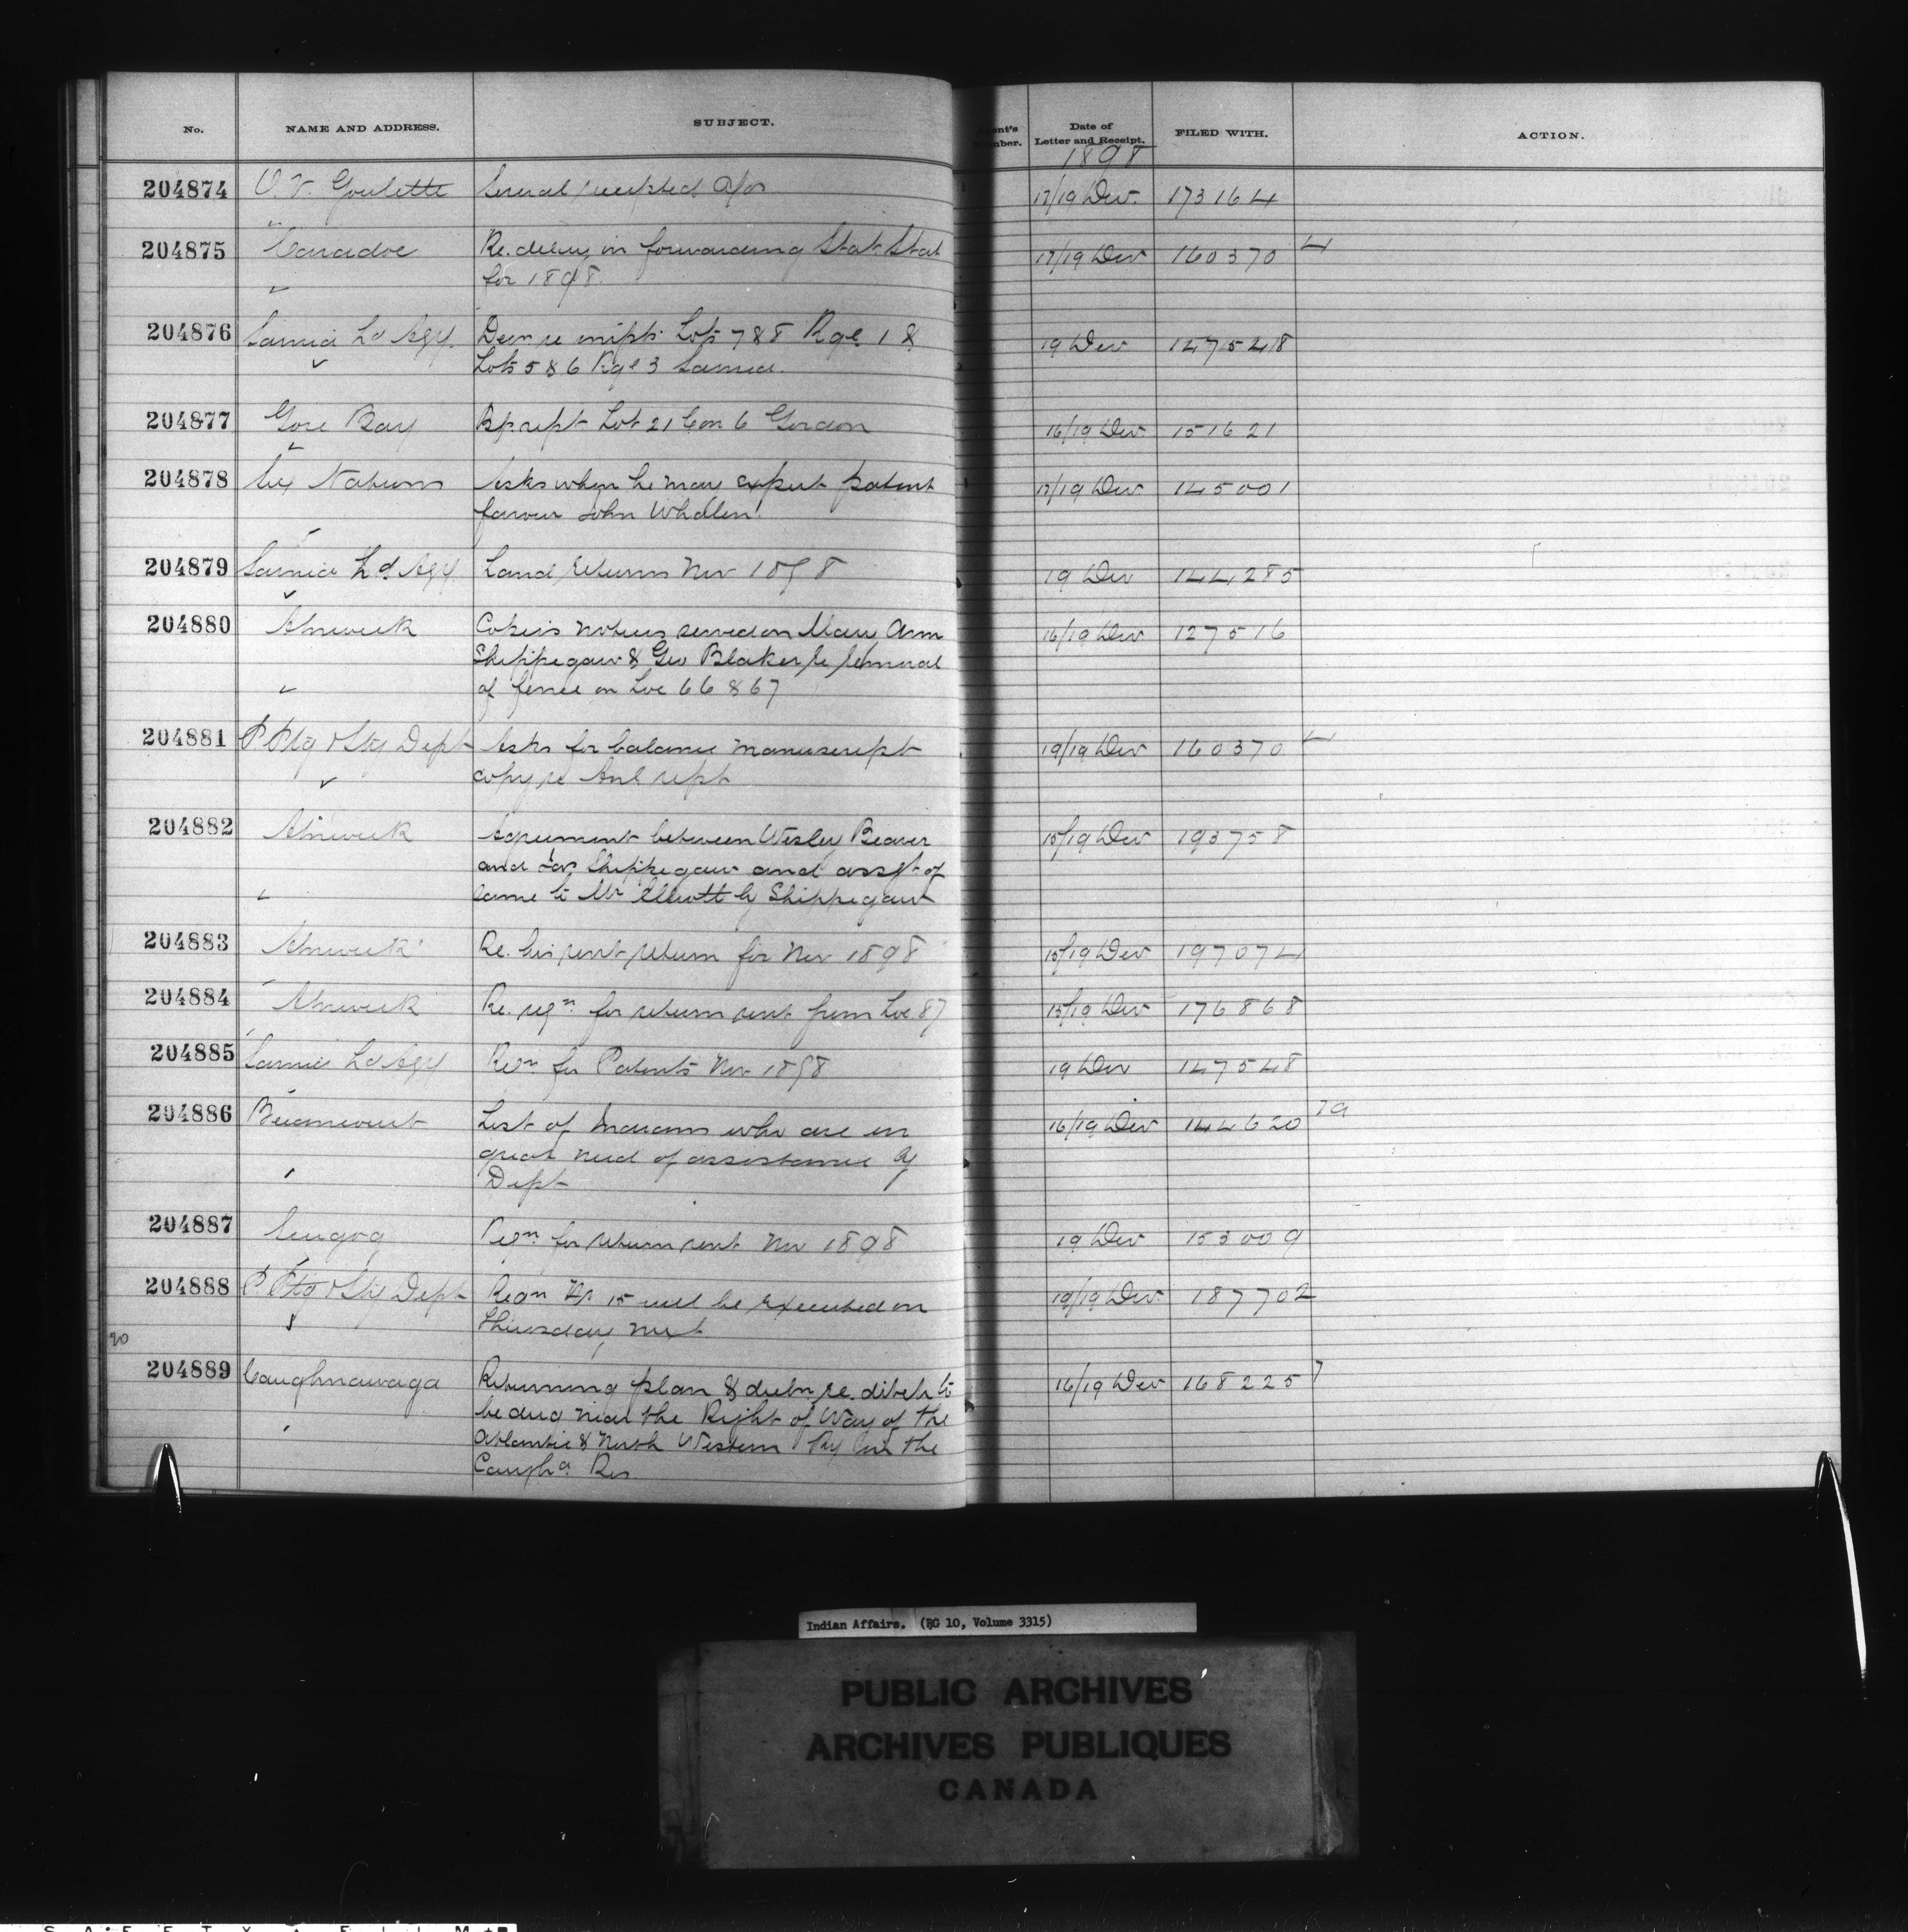 No. NAME AND ADDRESS. SUBJECT. Number. Date of Letter and Receipt. FILED WITH. ACTION.
1898
204874 O. V. Goulette Several receipted a/cs 17/19 Dec. 173164
204875 Caradoc Re. delay in forwarding Stat. Stat 17/19 Dec 160370 4
for 1898.
204876 Sarnia Ld Agy. Decn re impts Lots 7 & 8 Rge 1 & 19 Dec 147548
Lots 5 & 6 Rge 3 Sarnia.
204877 Gore Bay Insp. rept Lot 21 Con 6 Gordon 16/19 Dec 151621
204878 Six Nations Asks when he may expect patent 17/19 Dec 145001
favour John Whalen.
204879 Sarnia Ld. Agy Land returns Nov 1898 19 Dec 144285
204880 Alnwick Copies notices served on Mary Ann 16/19 Dec 127516
Shippegaw & Geo Blaker re removal
of fence on Loc 66 & 67
204881 P Ptg & Sty Dept Asks for balance manuscript 19/19 Dec 160370
copy re Anl rept
204882 Alnwick Agreement between Wesley Beaver 15/19 Dec 193758
and Shippegaw and assgt of
same to Mr Elliott by Shippegaw
204883 Alnwick Re. his rent return for Nov 1898 15/19 Dec 197074
204884 Alnwick Re. reqn. for return rent from Loc 87 15/19 Dec 176868
204885 Sarnia Ld Agy Retn. for Patents Nov 1898 19 Dec 147548
204886 Becancourt List of Indians who are in 16/19 Dec 144620 79
great need of assistance by
Dept
204887 Scugog Reqn. for return rent Nov 1898 19 Dec 153009
204888 P Ptg & Sty Dept Reqn No 15 will be executed on 19/19 Dec. 187702
Thursday next
20
204889 Caughnawaga Returning plan & re. ditch to 16/19 Dec 168225 7
be dug near the Right of Way of the
Atlantic & North Western Ry on the
Caugha. Res.
Indian Affairs. (RG 10, Volume 3315)
PUBLIC ARCHIVES
ARCHIVES PUBLIQUES
CANADA